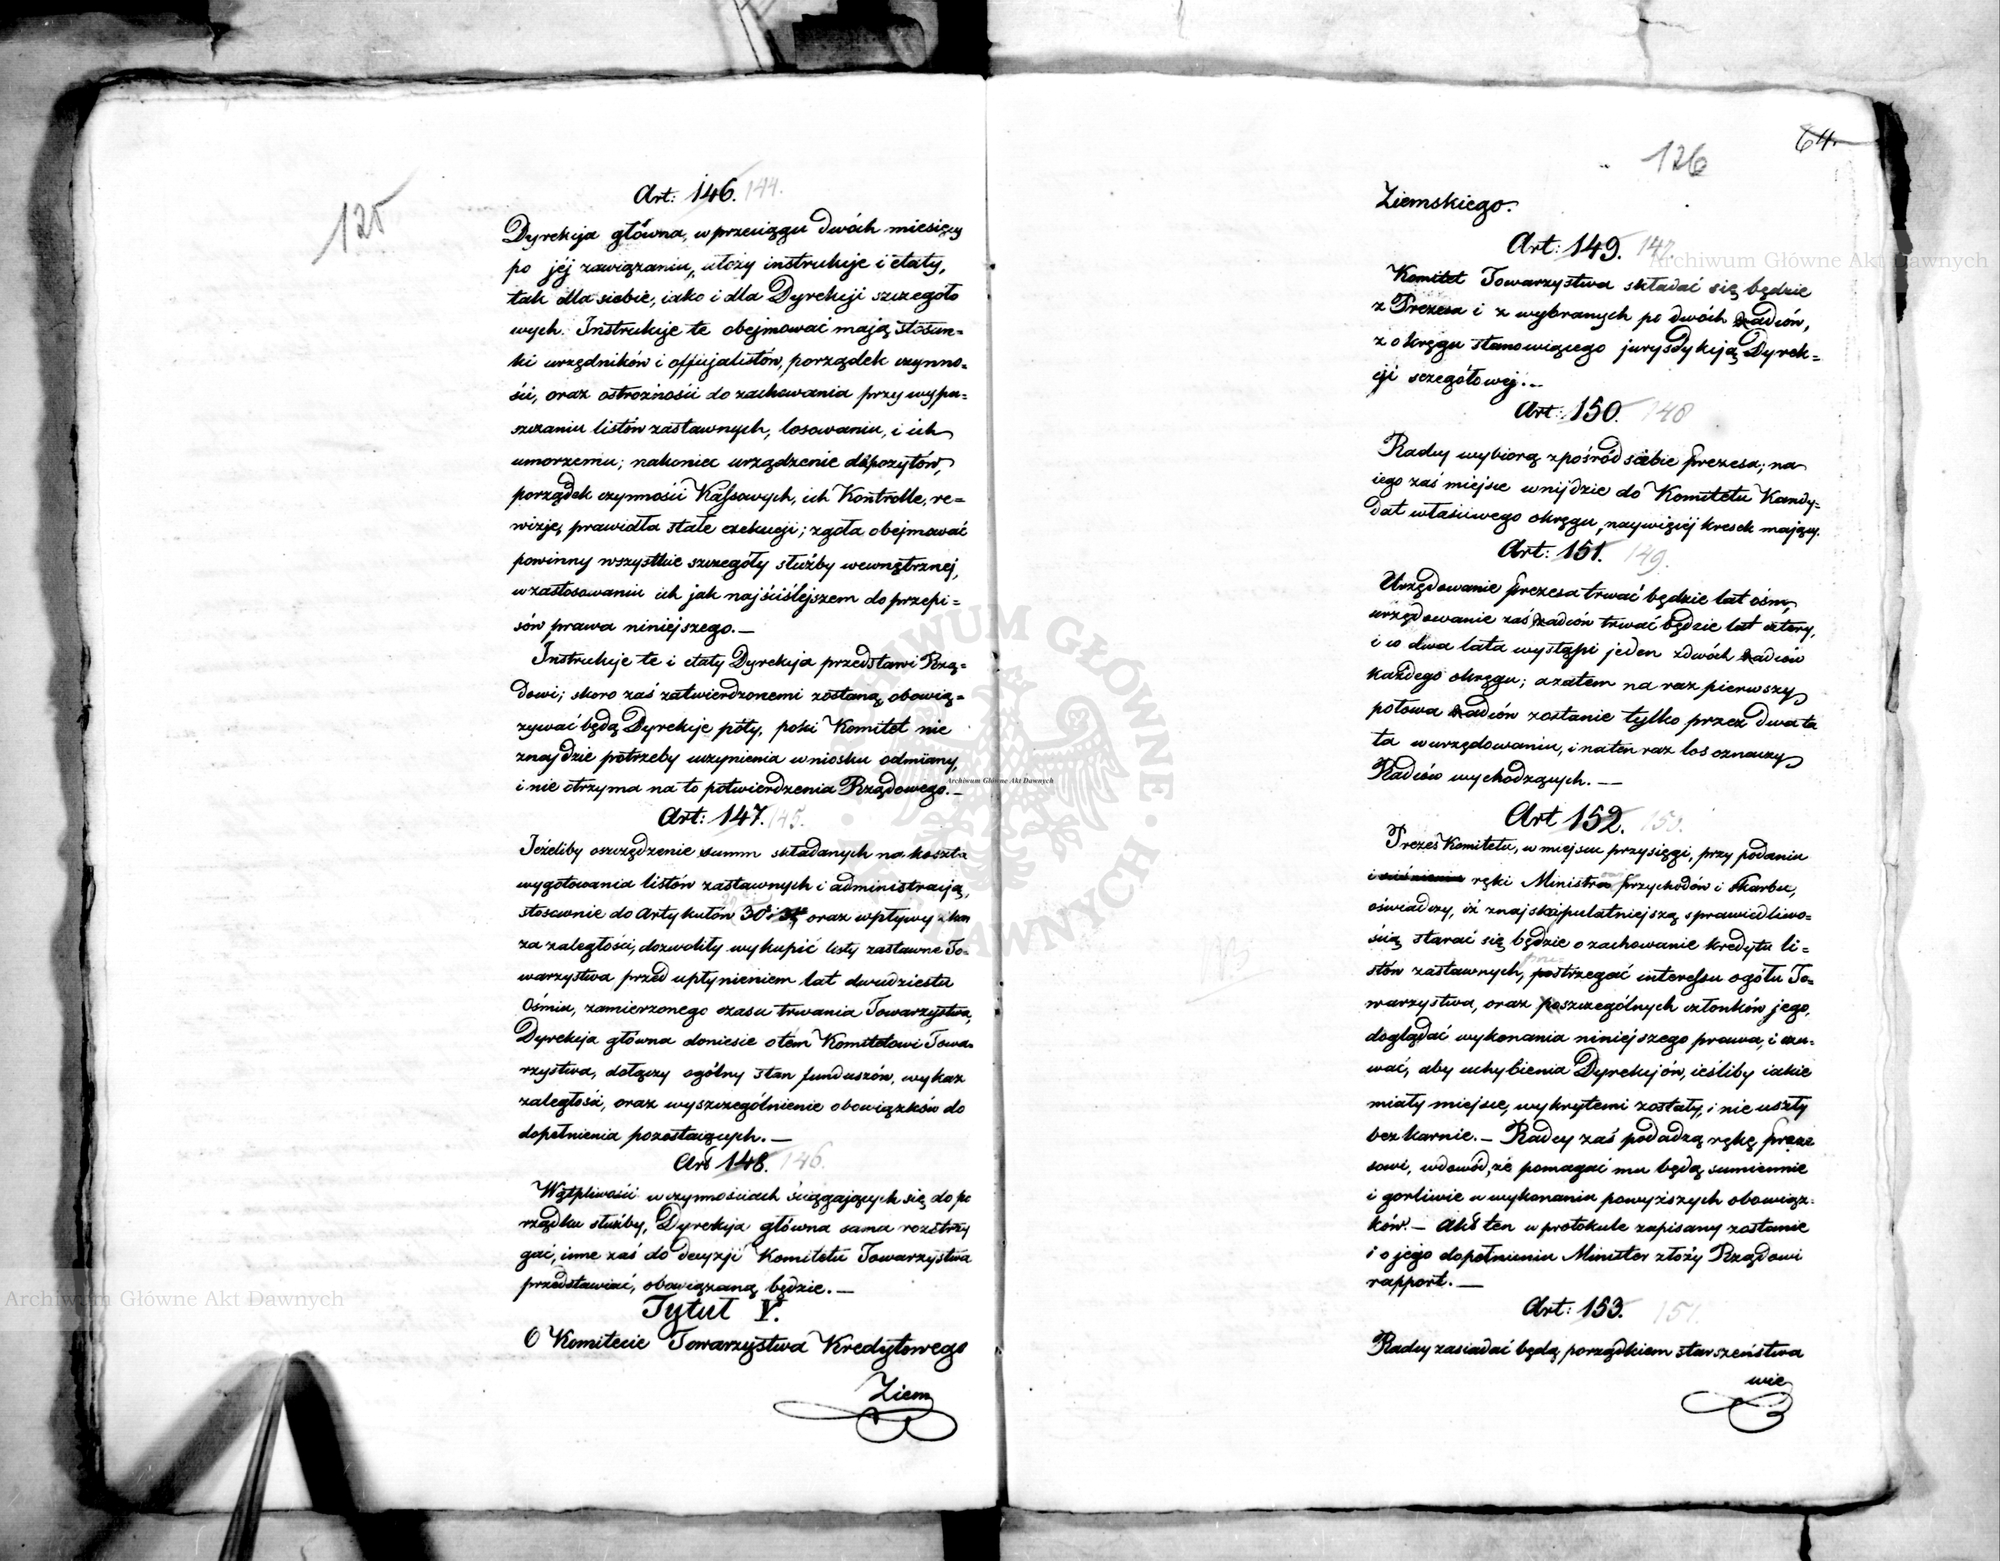 125
Art: 146. 144.
Dyrekcja główna, w przeciągu dwóch miesięcy
po jéj zawiązaniu, ułoży instrukcje i etaty,
tak dla siebie, iako i dla Dyrekcji szczegóło
wych. Instrukcje te obejmować mają stosun=
ki urzędników i officjalistów, porządek czynno=
ści, oraz ostrożności do zachowania przy wypu=
szczaniu listów zastawnych, losowaniu, i ich
umorzeniu; nakoniec urządzenie depozytów,
porządek czynności Kassowych, ich Kontrolle, re=
wizje, prawidła stałe exekucji; zgoła obejmować
powinny wszystkie szczegóły służby wewnętrznej,
w zastosowaniu ich jak najściślejszem do przepi=
sów prawa niniejszego. —
Instrukcje te i etaty Dyrekcja przedstawi Rzą=
dowi; skoro zaś zatwierdzonemi zostaną, obowią=
zywać będą Dyrekcje póty, póki Komitet nie
znajdzie potrzeby uczynienia wniosku odmiany,
i nie otrzyma na to potwierdzenia Rządowego. —
Art: 147. 145.
Jeżeliby oszczędzenie summ składanych na koszta
wygotowania listów zastawnych i administracją,
stosownie do Artykułów 30 i oraz wpływy z kar
za zaległości, dozwoliły wykupić listy zastawne To=
warzystwa przed upłynieniem lat dwudziestu
Ośmiu, zamierzonego czasu trwania Towarzystwa,
Dyrekcja główna doniesie o tém Komitetowi Towa=
rzystwa, dołączy ogólny stan funduszów, wykaz
zaległości, oraz wyszczególnienie obowiązków do
dopełnienia pozostaiących. —
Art 148. 146.
Wątpliwości w czynnościach ściągających się do po
rządku służby, Dyrekcja główna sama rozstrzy
gać, inne zaś do decyzji Komitetu Towarzystwa
przedstawiać, obowiązaną będzie. —
Tytuł V.
O Komitecie Towarzystwa Kredytowego
Ziem
64.
126
Ziemskiego.
Art: 149. 147
Komitet Towarzystwa składać się będzie
z Prezesa i z wybranych po dwóch Radców,
z okręgu stanowiącego jurysdykcją Dyrek=
cji sczegółowej. —
Art: 150. 148
Radcy wybiorą z pośród siebie prezesa; na
iego zaś miejsce wnijdzie do Komitetu Kandy=
dat właściwego okręgu, naywięcéj kresek mający.
Art: 151. 149.
Urzędowanie prezesa trwać będzie lat ośm,
urzędowanie zaś Radców trwać będzie lat cztery,
i co dwa lata wystąpi jeden z dwóch Radców
każdego okręgu; a zatem na raz pierwszy
połowa Radców zostanie tylko przez dwa la
ta w urzędowaniu, i na ten raz los oznaczy
Radców wychodzących. —
Art 152. 150.
Prezes Komitetu, w miejscu przysięgi, przy podaniu
i ręki Ministra przychodów i skarbu,
oświadczy, iż z najskrupulatniejszą sprawiedliwo=
ścią starać się będzie o zachowanie kredytu li=
stów zastawnych, postrzegać interessu ogółu To=
warzystwa, oraz poszczególnych członków jego,
doglądać wykonania niniejszego prawa, i czu=
wać, aby uchybienia Dyrekcjów, ieśliby iakie
miały miejsce, wykrytemi zostały, i nie uszły
bezkarnie. — Radcy zaś podadzą rękę preze
sowi, w dowód, że pomagać mu będą sumiennie
i gorliwie w wykonaniu powyższych obowiąz=
ków. — Akt ten w protokule zapisany zostanie
i o jego dopełnieniu Minister złoży Rządowi
rapport. —
Art: 153. 151.
Radcy zasiadać będą porządkiem starszeństwa
wie
Archiwum Główne Akt Dawnych
Archiwum Główne Akt Dawnych
Archiwum Główne Akt Dawnych
ARCHIWUM GŁÓWNE AKT DAWNYCH